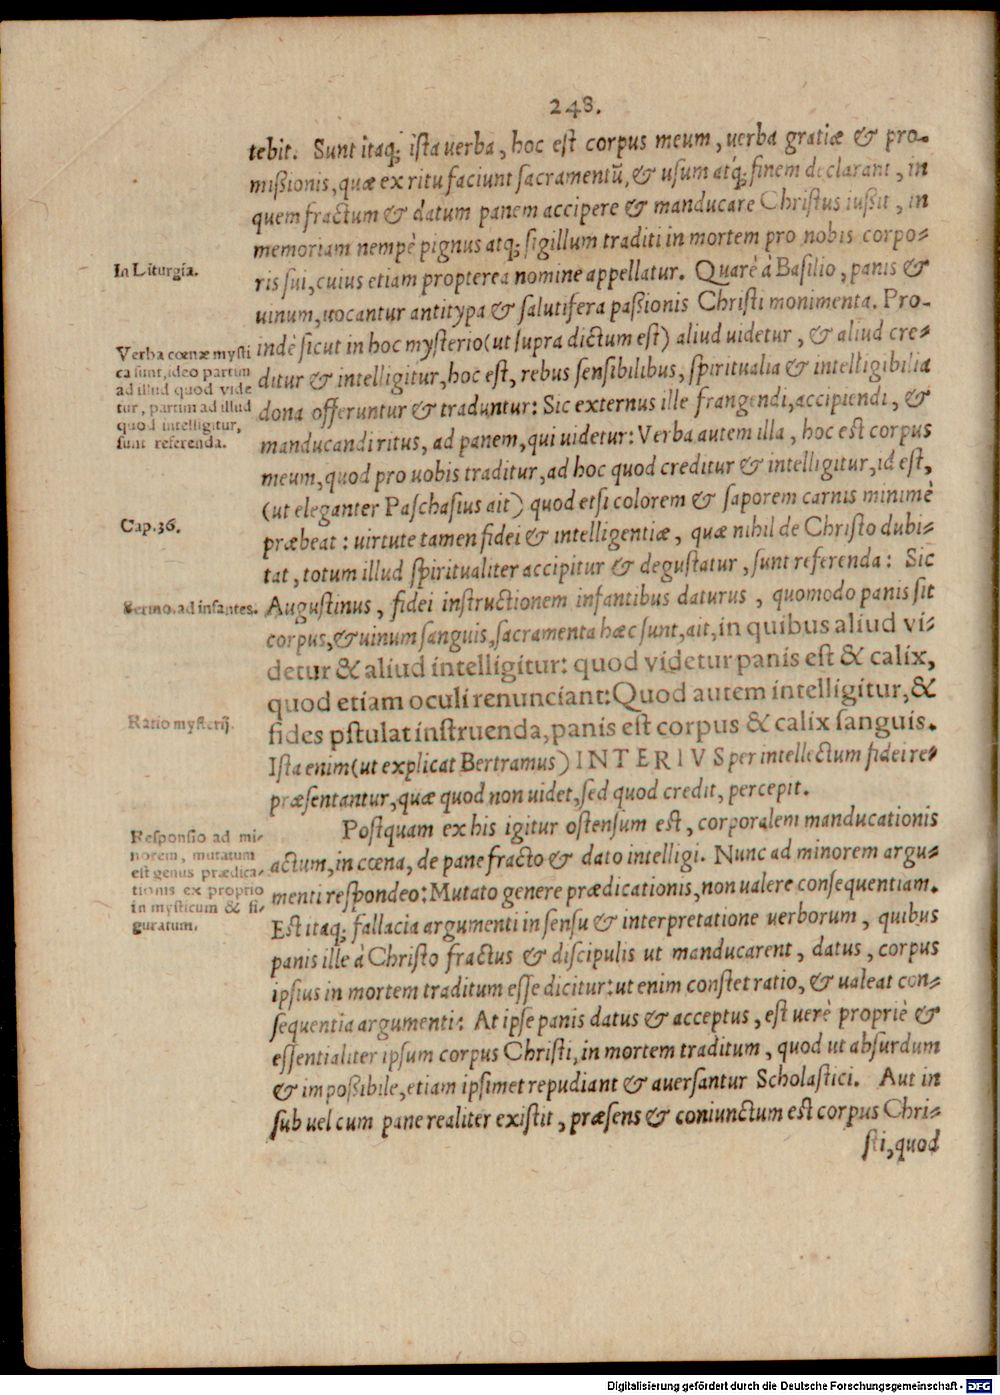 248.
tebit. Sunt itaq; ista uerba, hoc est corpus meum, uerba gratiæ & pro-
mißionis, quæ ex ritu faciunt sacramentũ, & usum atq́; finem declarant, in
quem fractum & datum panem accipere & manducare Christus iußit, in
memoriam nempè pignus atq; sigillum traditi in mortem pro nobis corpo-
In Liturgia.
ris sui, cuius etiam propterea nomine appellatur. Quarè à Basilio, panis &
uinum, uocantur antitypa & salutifera paßionis Christi monimenta. Pro-
indè sicut in hoc mysterio (ut supra dictum est) aliud uidetur, & aliud cre-
ditur & intelligitur, hoc est, rebus sensibilibus, spiritualia & intelligibilia
dona offeruntur & traduntur: Sic externus ille frangendi, accipiendi, &
manducandi ritus, ad panem, qui uidetur: Verba autem illa, hoc est corpus
Verba cœnæ mysti
ca sunt, ideo partim
ad illud quod vide
tur, partim ad illud
quod intelligitur,
sunt referenda.
meum, quod pro uobis traditur, ad hoc quod creditur & intelligitur, id est,
(ut eleganter Paschasius ait) quod etsi colorem & saporem carnis minimè
Cap. 36.
præbeat: uirtute tamen fidei & intelligentiæ, quæ nihil de Christo dubi-
tat, totum illud spiritualiter accipitur & degustatur, sunt referenda: Sic
Sermo. ad infantes.
Augustinus, fidei instructionem infantibus daturus, quomodo panis sit
corpus, & uinum sanguis, sacramenta hæc sunt, ait, in quibus aliud vi-
detur & aliud intelligitur: quod videtur panis est & calix,
quod etiam oculi renunciant: Quod autem intelligitur, &
Ratio mysterij.
fides pstulat instruenda, panis est corpus & calix sanguis.
Ista enim (ut explicat Bertramus) INTERIVS per intellectum fidei re-
præsentantur, quæ quod non uidet, sed quod credit, percepit.
Postquam ex his igitur ostensum est, corporalem manducationis
Responsio ad mi-
norem, mutatum
est genus prædica-
tionis ex proprio
in mysticum & fi-
guratum.
actum, in cœna, de pane fracto & dato intelligi. Nunc ad minorem argu-
menti respondeo: Mutato genere prædicationis, non ualere consequentiam.
Est itaq; fallacia argumenti in sensu & interpretatione uerborum, quibus
panis ille à Christo fractus & discipulis ut manducarent, datus, corpus
ipsius in mortem traditum esse dicitur: ut enim constet ratio, & ualeat con-
sequentia argumenti: At ipse panis datus & acceptus, est uerè propriè &
essentialiter ipsum corpus Christi, in mortem traditum, quod ut absurdum
& impoßibile, etiam ipsimet repudiant & auersantur Scholastici. Aut in
sub uel cum pane realiter existit, præsens & coniunctum est corpus Chri-
sti, quod
Digitalisierung gefördert durch die Deutsche Forschungsgemeinschaft - DFG